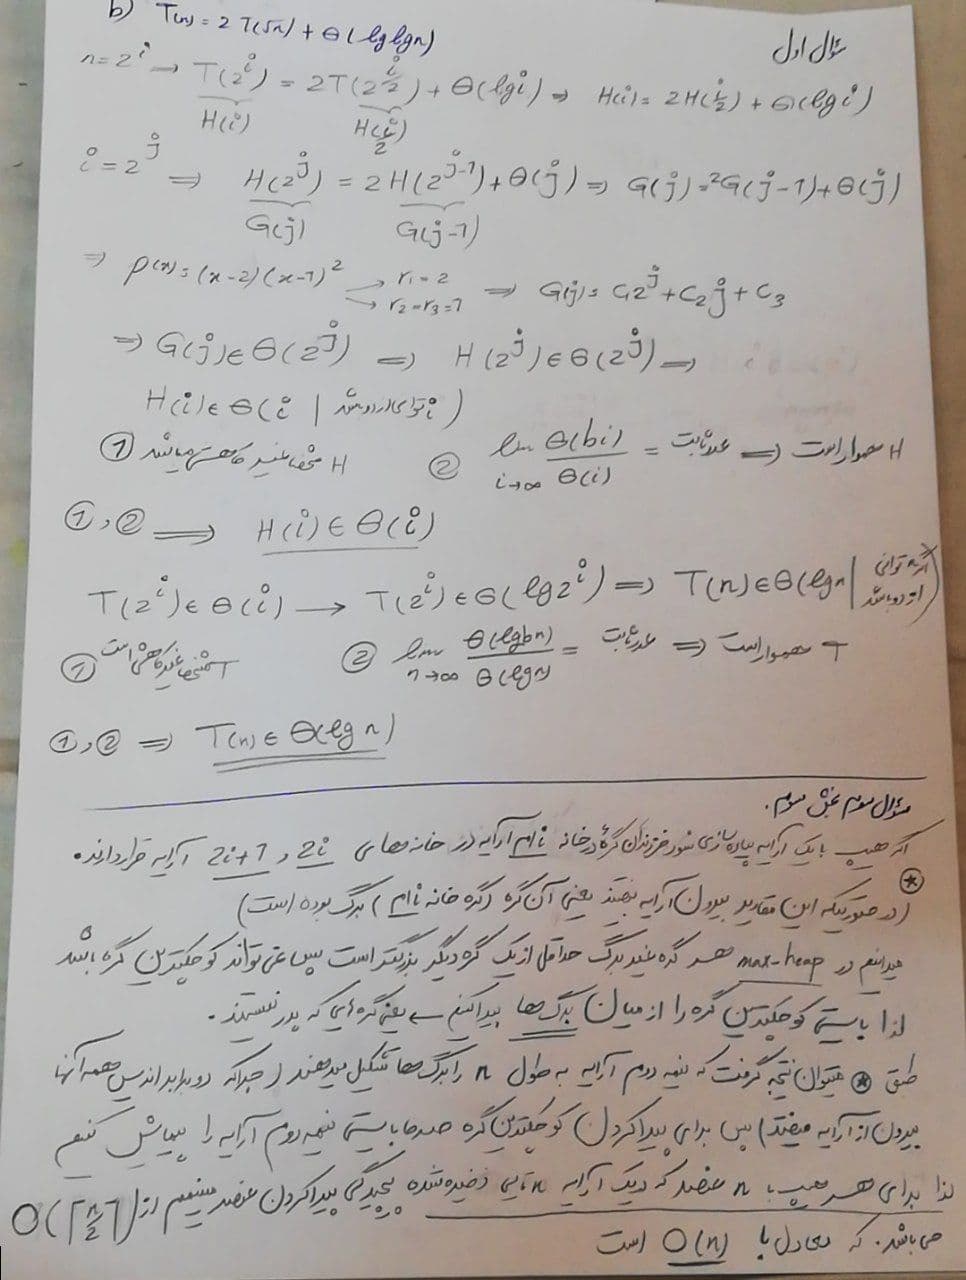 سؤال اول
b) T(n) = 2T(√n) + Θ(lglgn)
n=2^i → T(2^i) = 2T(2^(i/2)) + Θ(lgi) ⇒ H(i) = 2H(i/2) + Θ(lgi)
H(i) H(i/2)
i=2^j ⇒ H(2^j) = 2H(2^(j-1)) + Θ(j) ⇒ G(j) = 2G(j-1) + Θ(j)
G(j) G(j-1)
⇒ P(x) = (x-2)(x-1)^2 → r1=2 → r2=r3=1 ⇒ G(j) = C1 2^j + C2 j + C3
⇒ G(j) ∈ Θ(2^j) ⇒ H(2^j) ∈ Θ(2^j) ⇒
H(i) ∈ Θ(i | i توانی از دو باشد)
① H مشخصا غیر کاهشی میباشد ② lim i→∞ Θ(bi)/Θ(i) = عدد ثابت ⇒ H هموار است
①,② ⇒ H(i) ∈ Θ(i)
T(2^i) ∈ Θ(i) → T(2^i) ∈ Θ(lg2^i) ⇒ T(n) ∈ Θ(lgn | اگر n توانی از دو باشد)
① T مشخصا غیرکاهشی است ② lim n→∞ Θ(lgbn)/Θ(lgn) = عدد ثابت ⇒ T هموار است
①,② ⇒ T(n) ∈ Θ(lg n)
سؤال سوم بخش سوم.
اگر هیپ با یک آرایه پیاده سازی شود فرزندان گره در خانه i ام آرایه در خانه های 2i و 2i+1 آرایه قرار دارند.
⊛ (در صورتیکه این مقادیر بیرون آرایه بیفتند یعنی آن گره (گره خانه i ام) برگ بوده است)
میدانیم در max-heap هر گره غیر برگ حداقل از یک گره دیگر بزرگتر است پس نمی تواند کوچکترین گره باشد
لذا بایستی کوچکترین گره را از میان برگ ها پیدا کنیم ← یعنی گره هایی که پدر نیستند.
طبق ⊛ میتوان نتیجه گرفت که نیمه دوم آرایه به طول n را برگ ها تشکیل میدهند (چرا که دو برابر اندیس همه آنها
بیرون از آرایه میفتد) پس برای پیدا کردن کوچکترین گره صرفا بایستی نیمه دوم آرایه را پیمایش کنیم
لذا برای هر هیپ با n عنصر که در یک آرایه n تایی ذخیره شده پیچیدگی پیدا کردن عنصر مینیمم از O(⌈n/2⌉)
می باشد. که معادل با O(n) است